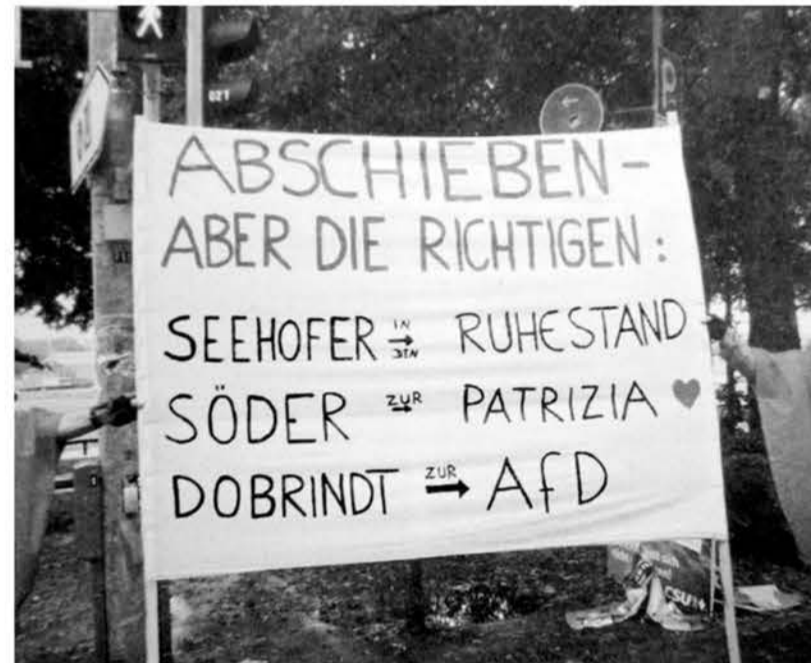 ABSCHIEBEN -
ABER DIE RICHTIGEN :
SEEHOFER IN DEN → RUHESTAND
SÖDER ZUR → PATRIZIA ♥
DOBRINDT ZUR → AfD
CSU